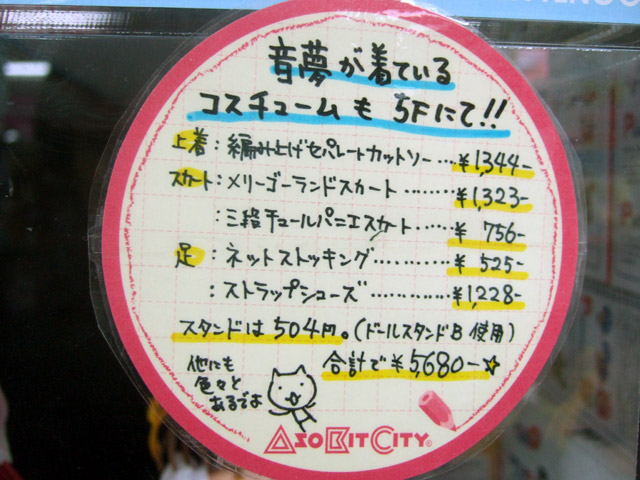 音夢が着ている
コスチュームも 5Fにて!!
上着:編み上げセパレートカットソー…¥1,344-
スカート:メリーゴーランドスカート………¥1,323-
:三段チュールパニエスカート……¥756-
足:ネットストッキング…………¥525-
:ストラップシューズ…………¥1,228-
スタンドは504円。(ドールスタンドB 使用)
合計で¥5,680-☆
他にも
色々と
あるでよ
ASOBITCITY®